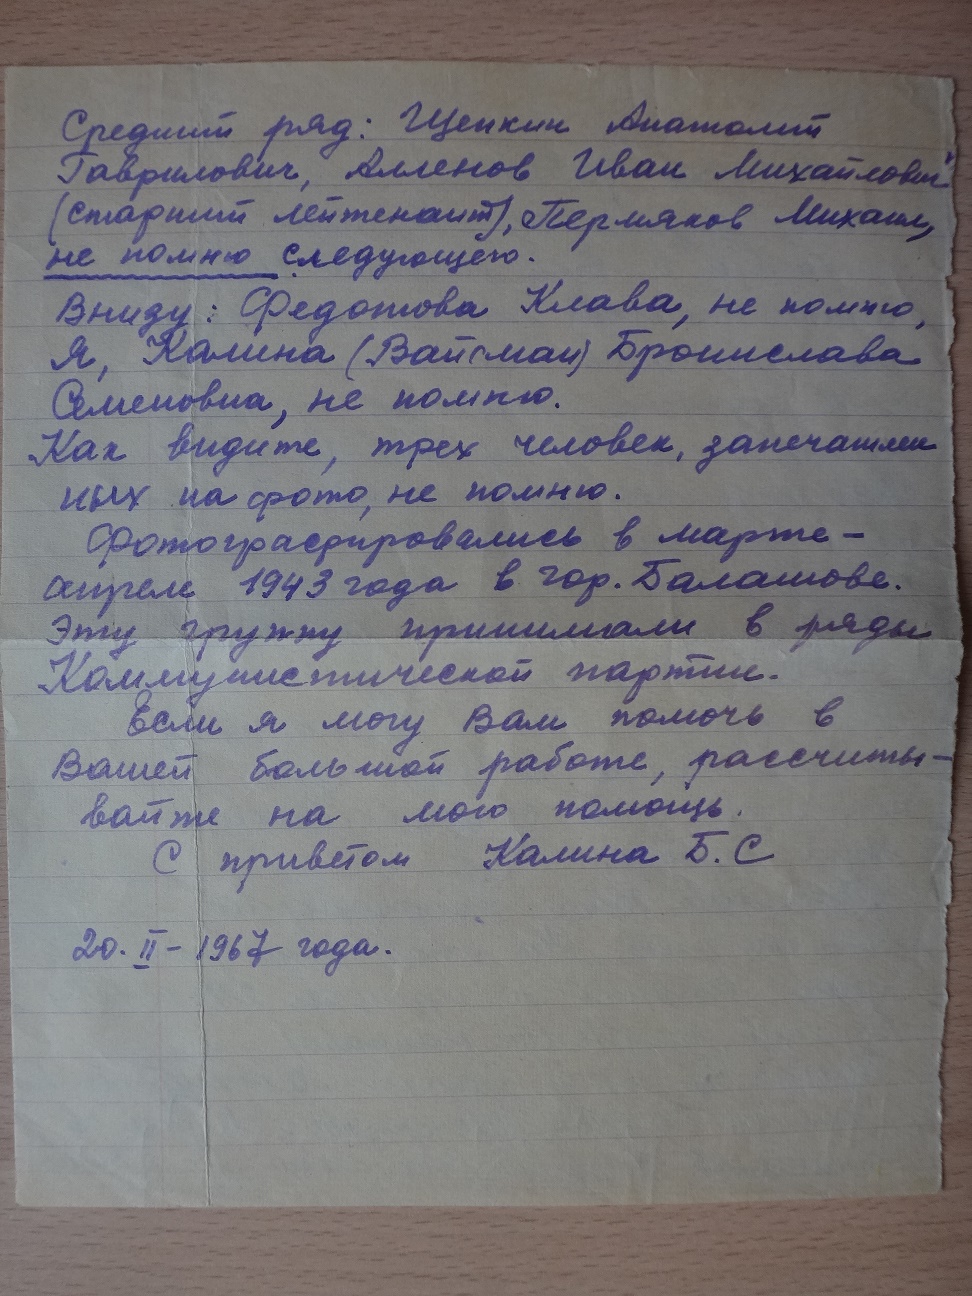 Средний ряд: Щепкин Анатолий
Гаврилович, Алленов Иван Михайлович
(старший лейтенант), Пермяков Михаил,
не помню следующего.
Внизу: Федотова Клава, не помню,
Я, Калина (Вайсман) Бронислава
Семеновна, не помню.
Как видите, трех человек, запечатлен
ных на фото, не помню.
Фотографировались в марте-
апреле 1943 года в гор. Балашове.
Эту группу принимали в ряды
Коммунистической партии.
Если я могу Вам помочь в
Вашей большой работе, рассчиты-
вайте на мою помощь.
С приветом Калина Б.С
20. II - 1967 года.